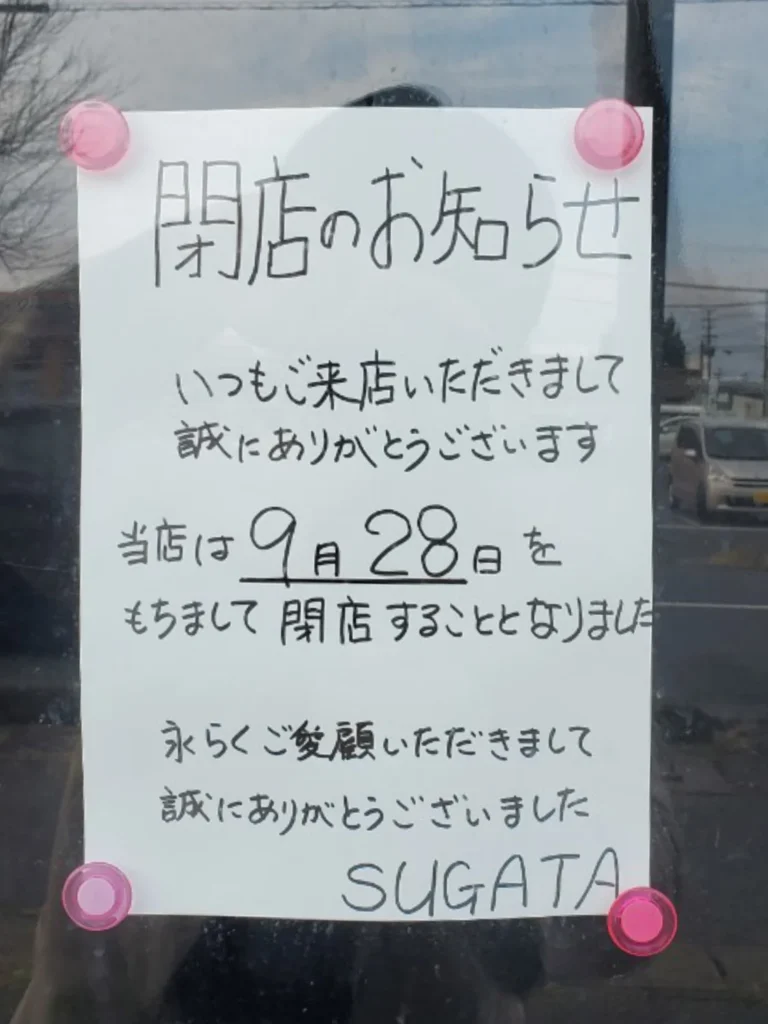 閉店のお知らせ
いつもご来店いただきまして
誠にありがとうございます
当店は9月28日を
もちまして閉店することとなりました
永らくご愛顧いただきまして
誠にありがとうございました
SUGATA